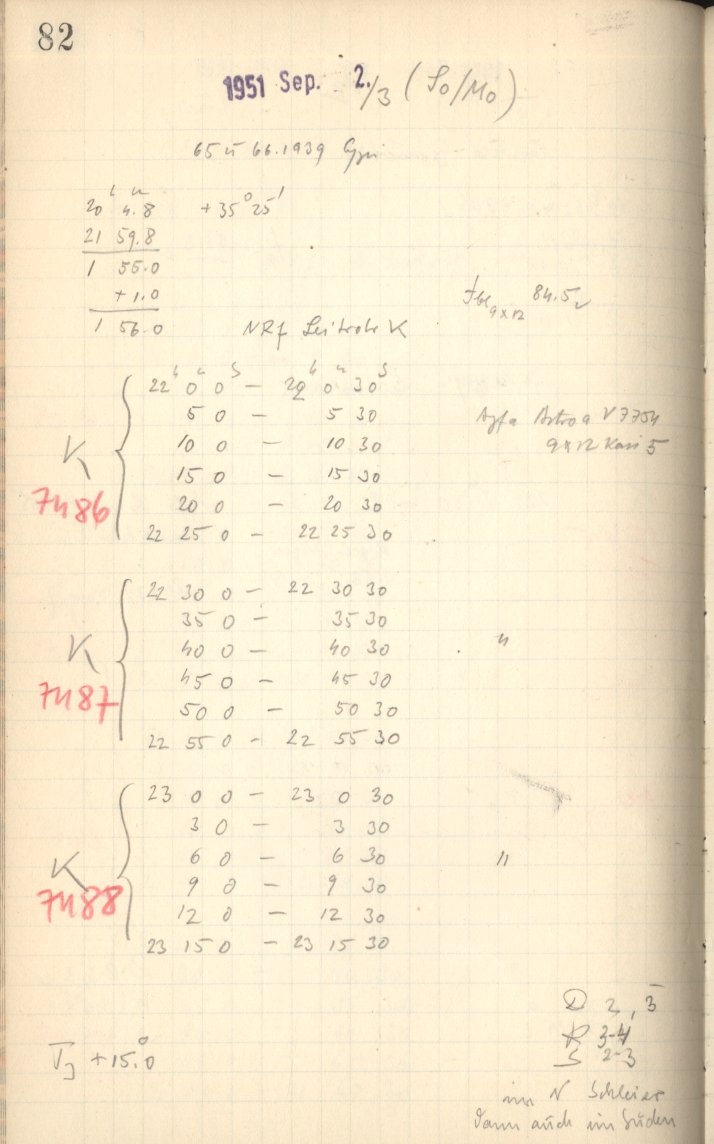 82
1951 Sep. 2./3 (So/Mo)
65 u 66.1939 Cygni
20 h 4.8 m +35° 25'
21 59.8
1 55.0
+1.0
1 56.0
NRf Leitrohr K
9x12 84.5
22 h 0 m 0 s — 22 h 0 m 30 s
5 0 — 5 30
10 0 — 10 30
15 0 — 15 30
20 0 — 20 30
22 25 0 — 22 25 30
K
7486
Agfa Astro V 7754
9x12 Kas 5
22 30 0 — 22 30 30
35 0 — 35 30
40 0 — 40 30
45 0 — 45 30
50 0 — 50 30
22 55 0 — 22 55 30
K
7487
"
23 0 0 — 23 0 30
3 0 — 3 30
6 0 — 6 30
9 0 — 9 30
12 0 — 12 30
23 15 0 — 23 15 30
K
7488
"
D 2, 3
R 3-4
S 2-3
TJ +15.0°
im N Schleier
dann auch im Süden